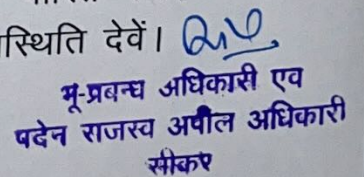 स्थिति देवें।
भू-प्रबन्ध अधिकारी एव
पदेन राजस्व अपील अधिकारी
सीकर